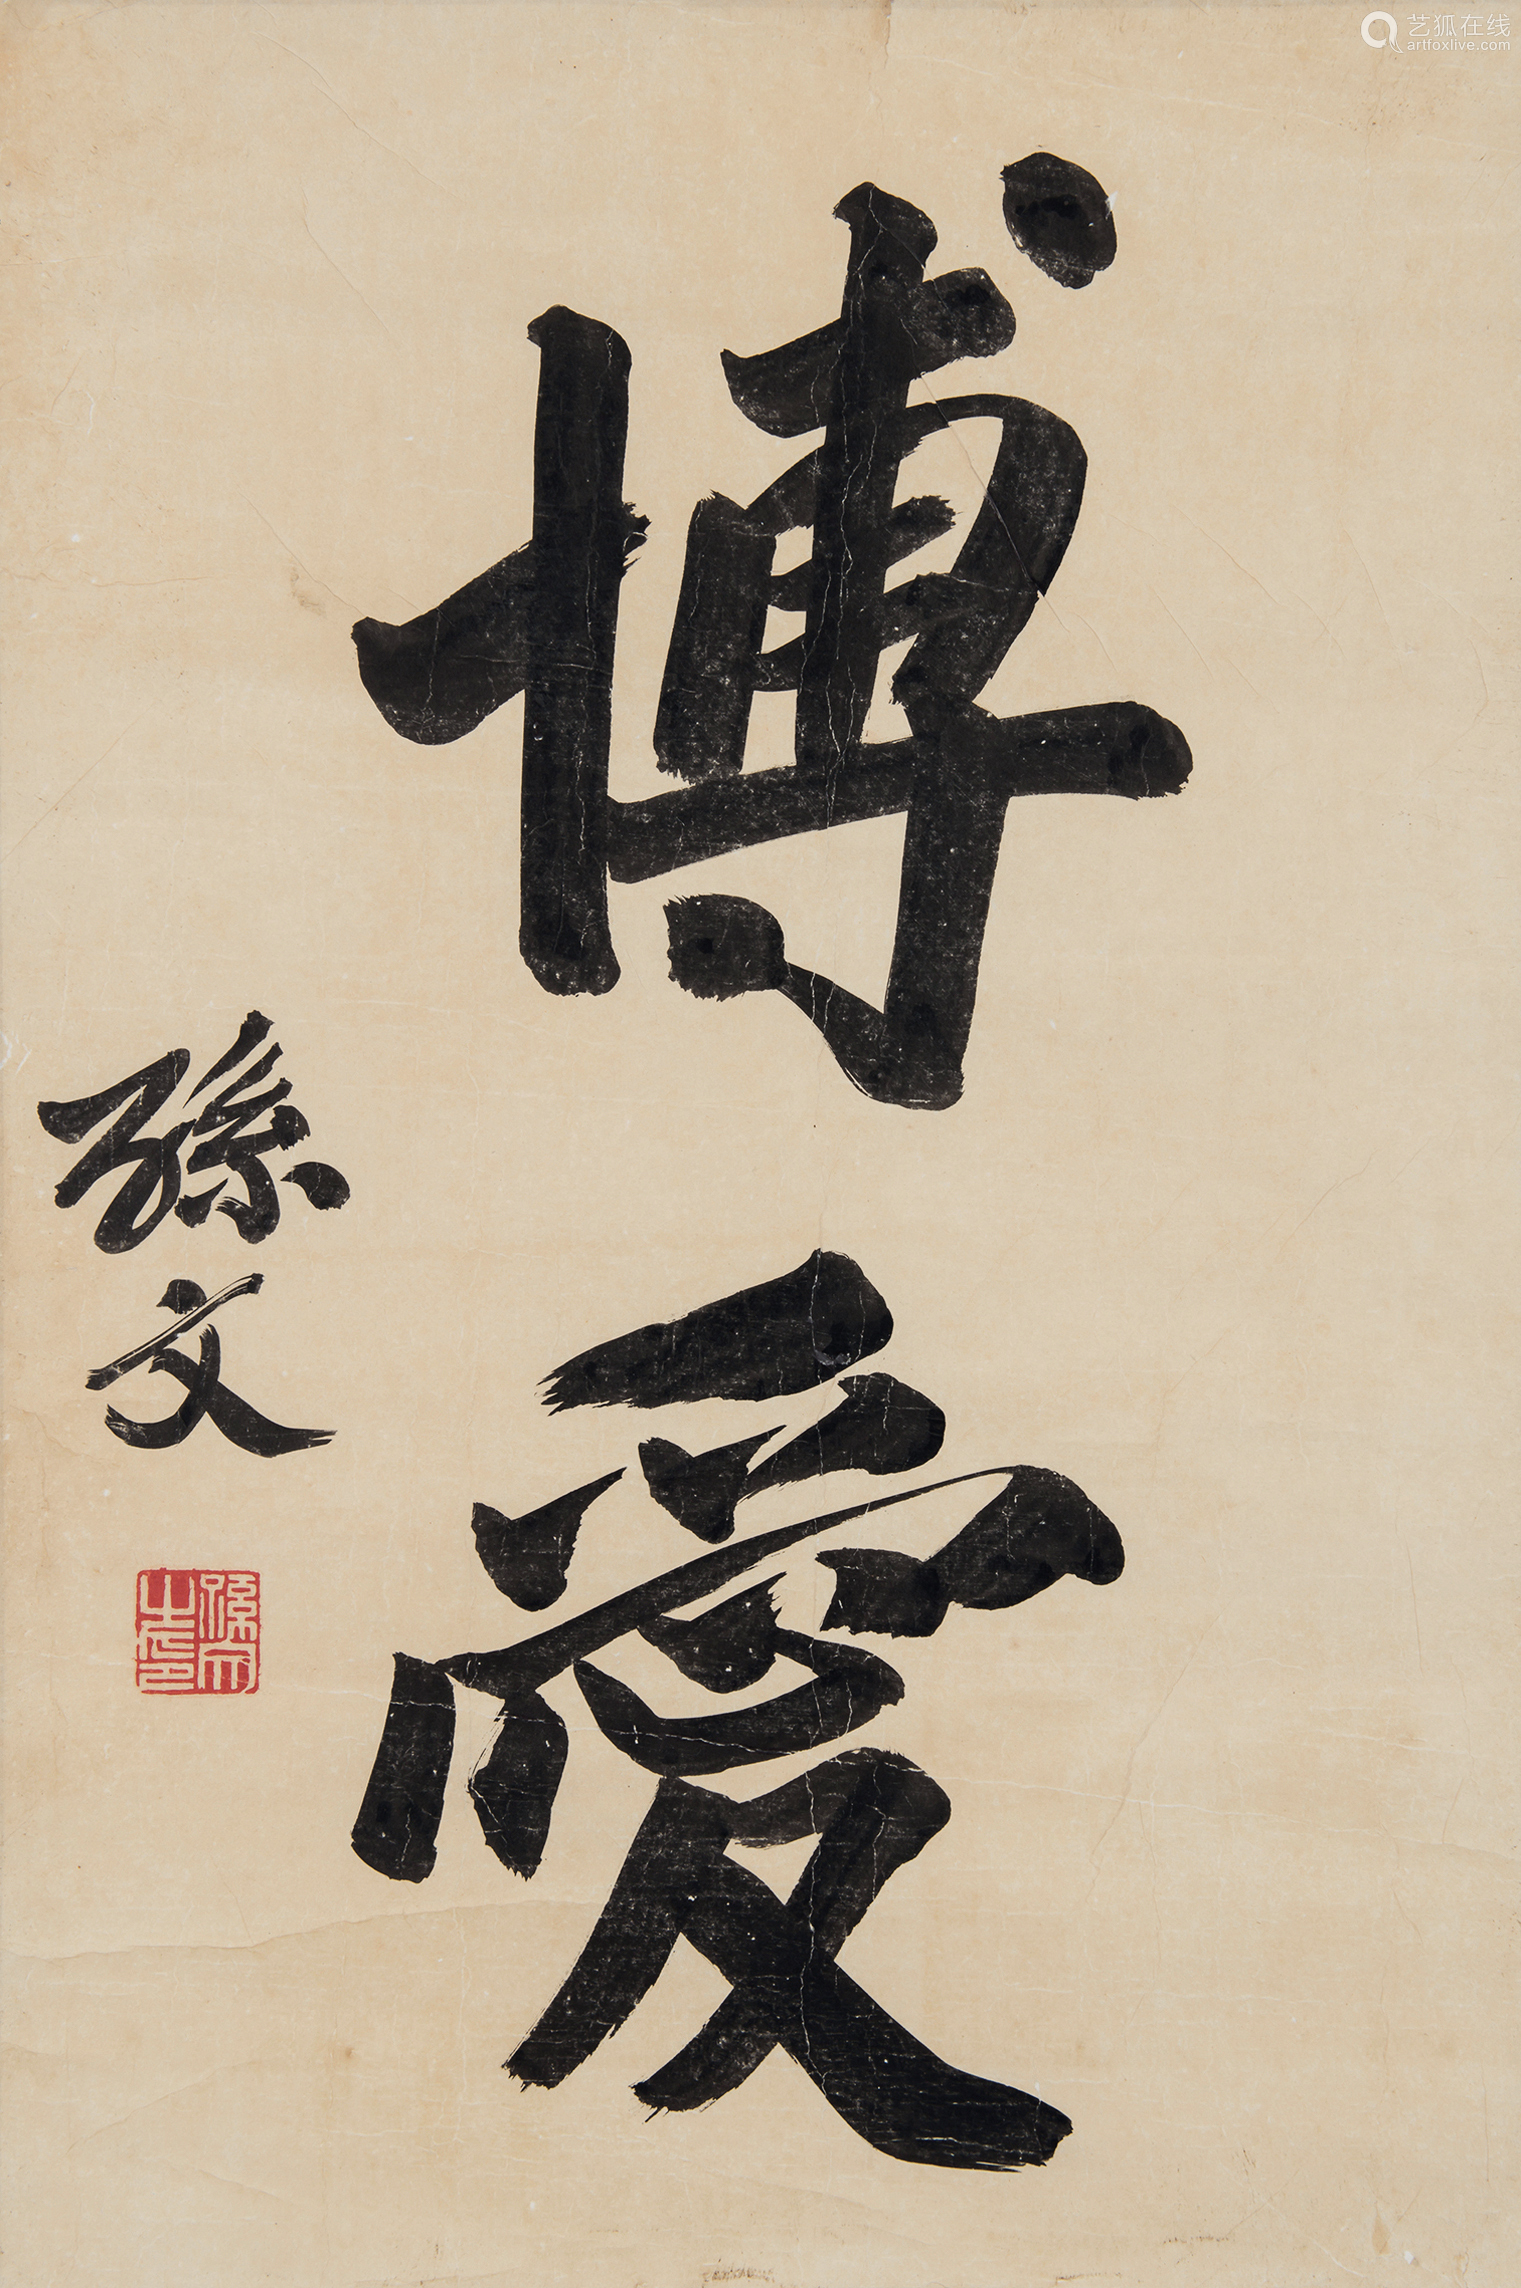 博愛
孫文
孫文之印
艺狐在线
artfoxlive.com